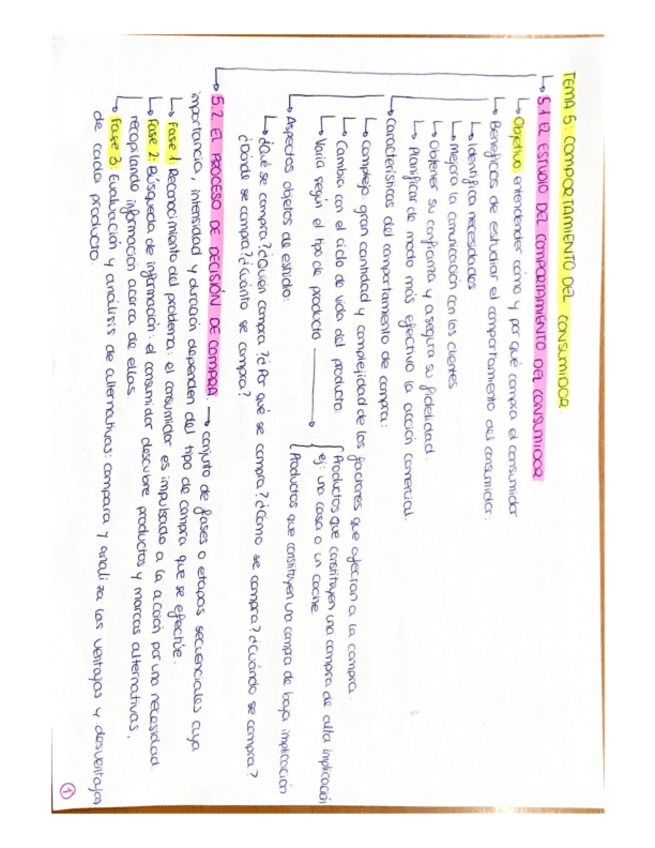 TEMA 5: COMPORTAMIENTO DEL CONSUMIDOR.
↳ 5.1 El ESTUDIO DEL COMPORTAMIENTO DEL CONSUMIDOR
↳ Objetivo entendender cómo y por qué compra el consumidor
↳ Beneficios de estudiar el comportamiento del consumidor:
↳ Identifica necesidades
↳ Mejora la comunicación con los clientes
↳ Obtener su confianza y asegura su fidelidad.
↳ Planificar de modo más efectivo la acción comercial.
↳ Características del comportamiento de compra:
↳ Complejo: gran cantidad y complejidad de los factores que afectan a la compra.
↳ Cambia con el ciclo de vida del producto.
↳ Varía según el tipo de producto → { Productos que constituyen una compra de alta implicación
ej: una casa o un coche
Productos que constituyen una compra de baja implicación
↳ Aspectos objetos de estudio:
↳ ¿Qué se compra? ¿Quién compra? ¿Por qué se compra? ¿Cómo se compra? ¿Cuándo se compra?
¿Dónde se compra? ¿Cuánto se compra?
↳ 5.2. El PROCESO DE DECISIÓN DE COMPRA. → conjunto de fases o etapas secuenciales cuya
importancia, intensidad y duración dependen del tipo de compra que se efectúe.
↳ Fase 1: Reconocimiento del problema: el consumidor es impulsado a la acción por una necesidad.
↳ Fase 2: Búsqueda de información: el consumidor descubre productos y marcas alternativas,
recopilando información acerca de ellas.
↳ Fase 3: Evaluación y análisis de alternativas: compara y analiza las ventajas y desventajas
de cada producto.
1